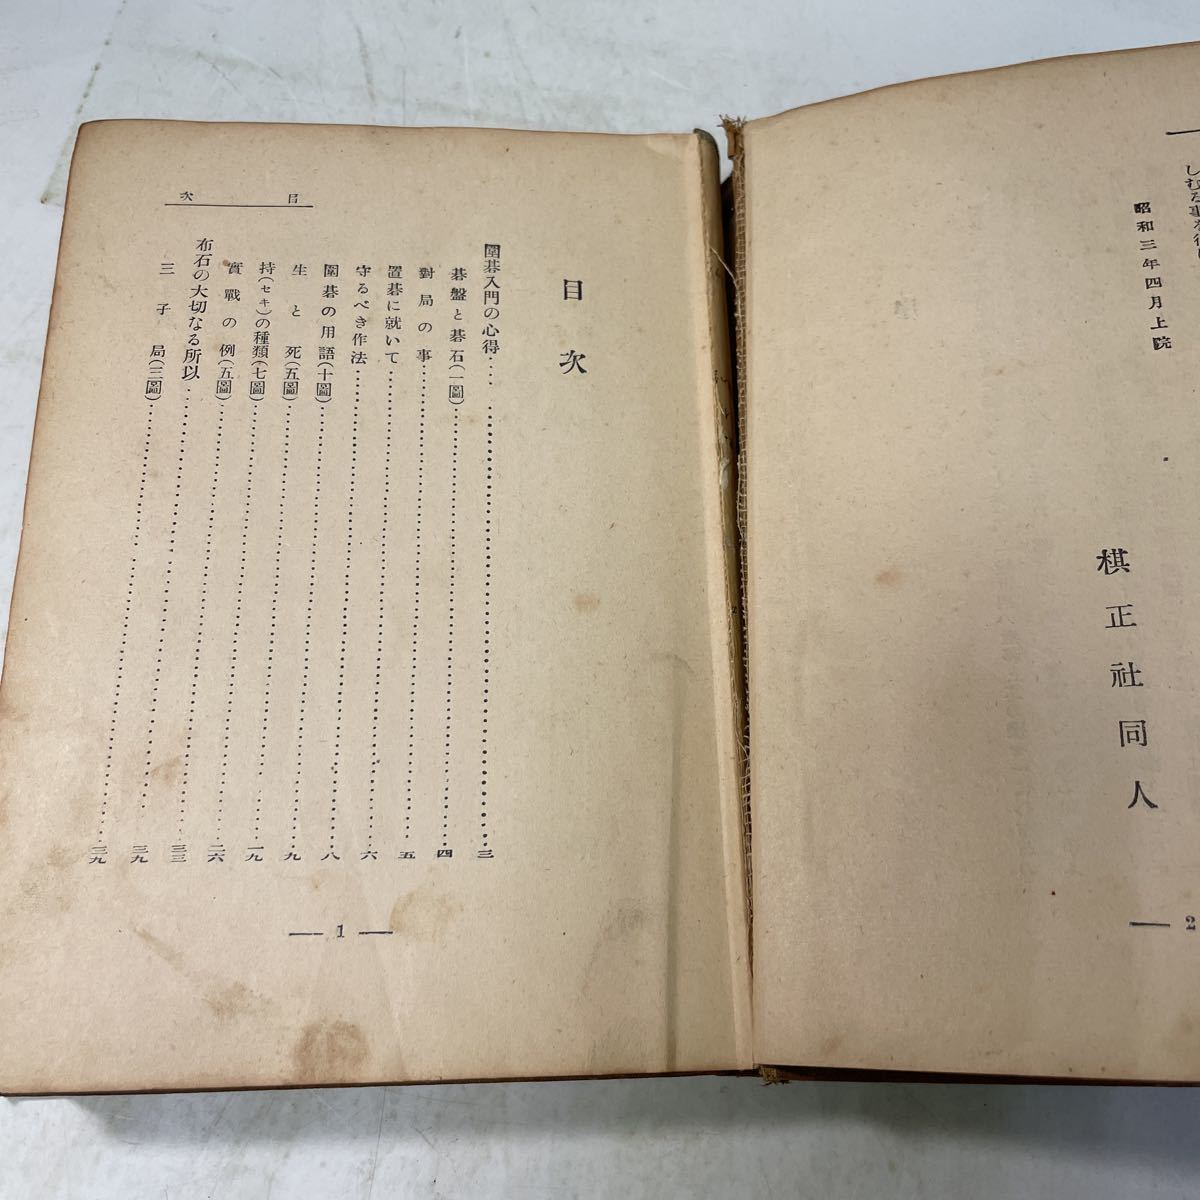 しむる事を得
昭和三年四月上院
棋正社同人
— 2
目次
目次
圍碁入門の心得…………三
碁盤と碁石(一圖)…………四
對局の事…………五
置碁に就いて…………六
守るべき作法…………八
圍碁の用語(十圖)…………九
生と死(五圖)…………一九
持(セキ)の種類(七圖)…………二六
實戰の例(五圖)…………三三
布石の大切なる所以…………三九
三子局(三圖)…………三九
— 1 —